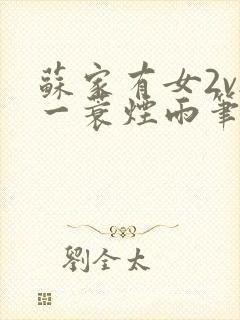 蘇家有女2v
一蓑煙雨筆
劉全太